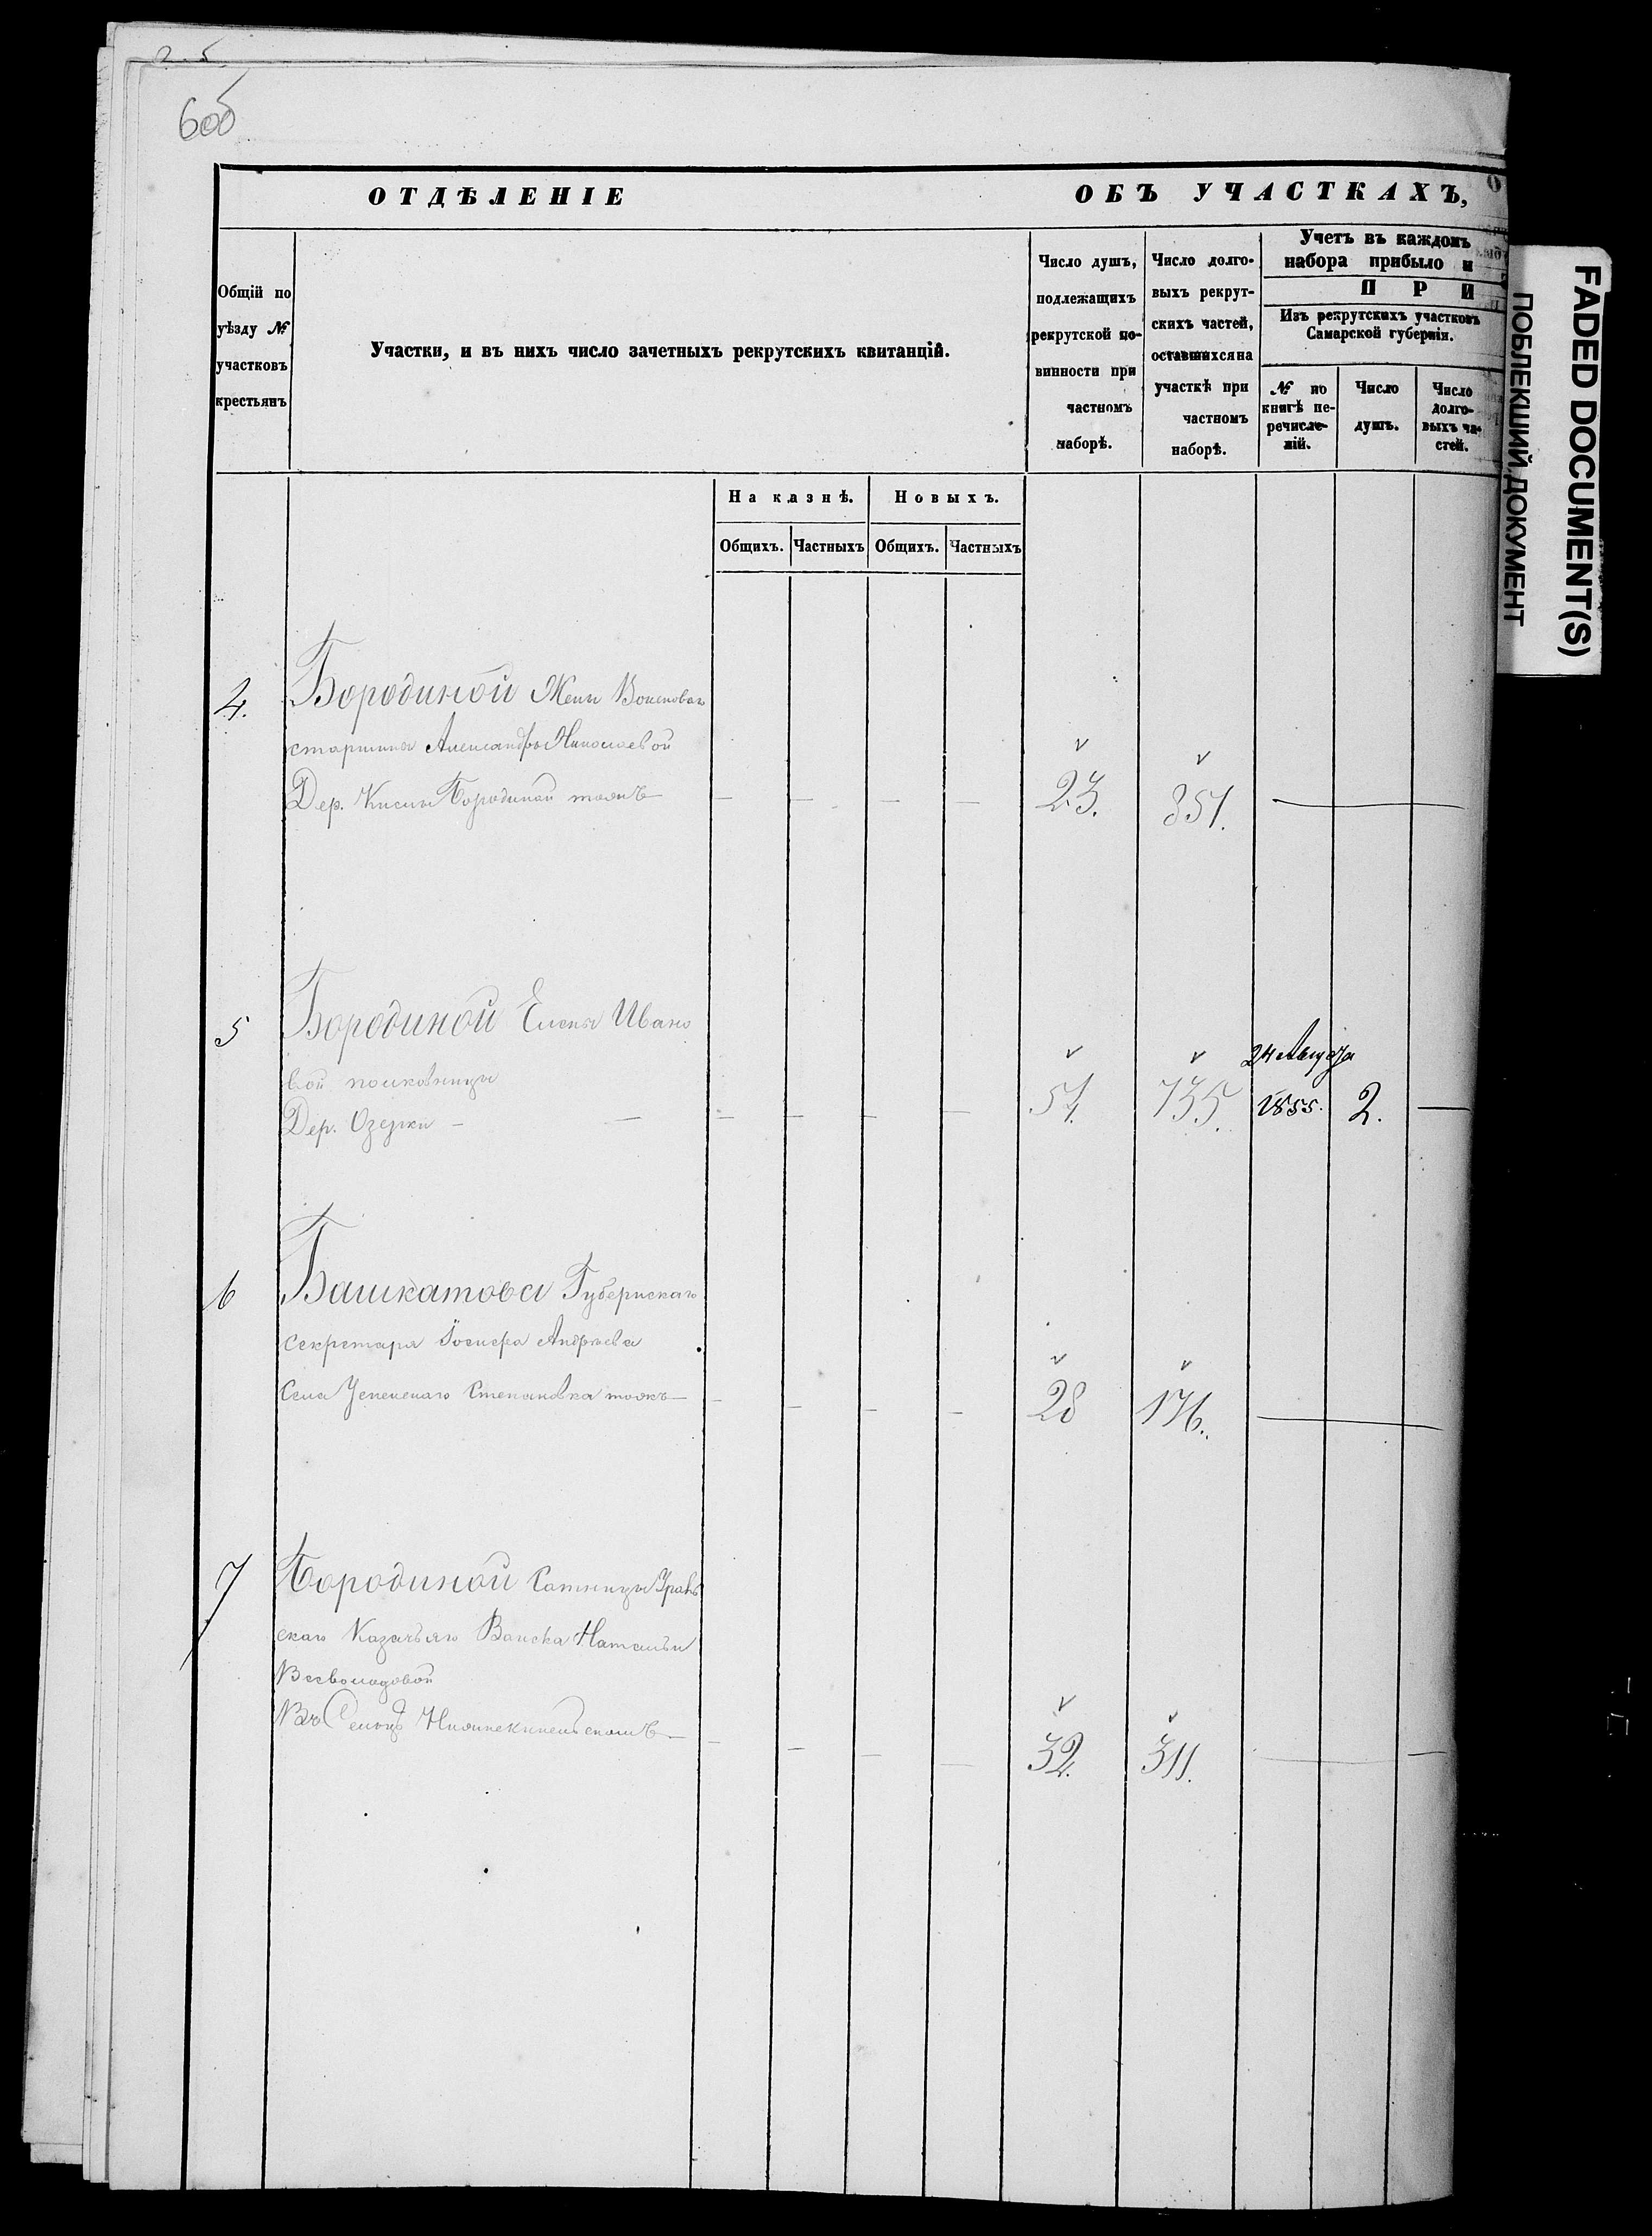 6 об
ОТДѢЛЕНІЕ ОБЪ УЧАСТКАХЪ,
Общій по уѣзду № участковъ крестьянъ
Участки, и въ нихъ число зачетныхъ рекрутскихъ квитанцій.
Число душъ, подлежащихъ рекрутской по-винности при частномъ наборѣ.
Число долго-выхъ рекрут-скихъ частей, оставшихся на участкѣ при частномъ наборѣ.
Учетъ въ каждомъ
набора прибыло и
П Р И
Изъ рекрутскихъ участковъ
Самарской губерніи.
№ по книгѣ пе-речисле-ній.
Число душъ.
Число долго-выхъ ча-стей.
На казнѣ. Новыхъ.
Общихъ. Частныхъ Общихъ. Частныхъ
4. Бородиной Жены Воисковаго
старшины Александры Николаевой
Дер. Бородиной тожъ — — — — — 23. 351. —
5 Бородиной Елены Ивано
вой полковницы
24 Августа
Дер. Озерки — — — — — — 51. 735. 1855. 2. —
6 Башкатова Губернскаго
секретаря Іосифа Андреева
Села Успенскаго Степановка тожъ — — — — — 28 176. —
7 Бородиной Сотницы Ураль
скаго Казачьяго Воиска Натальи
Всеволодовой
Въ Сельцѣ — — — — — 32. 311. — —
FADED DOCUMENT(S)
ПОБЛЕКШИЙ ДОКУМЕНТ